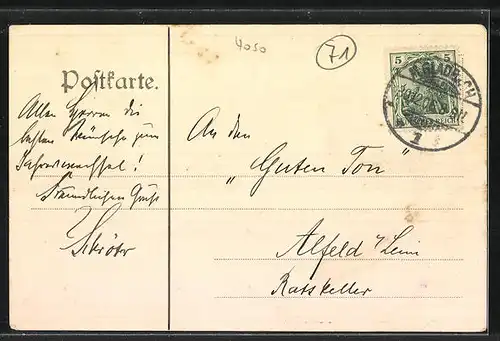 4050
71
Postkarte.
5 5
M. GLADBACH
REICH
1
Allen Herren die
besten Wünsche zum
Jahreswechsel!
Freundlichen Gruß
Schröter
An den
„Guten Ton"
Alfeld a/Leine
Ratskeller